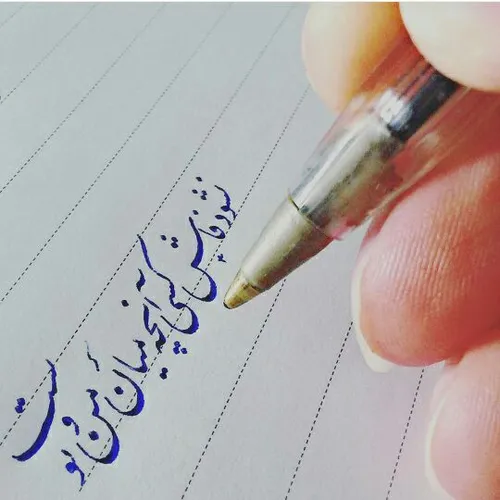 نشود فاش کسی آنچه میان من و توست